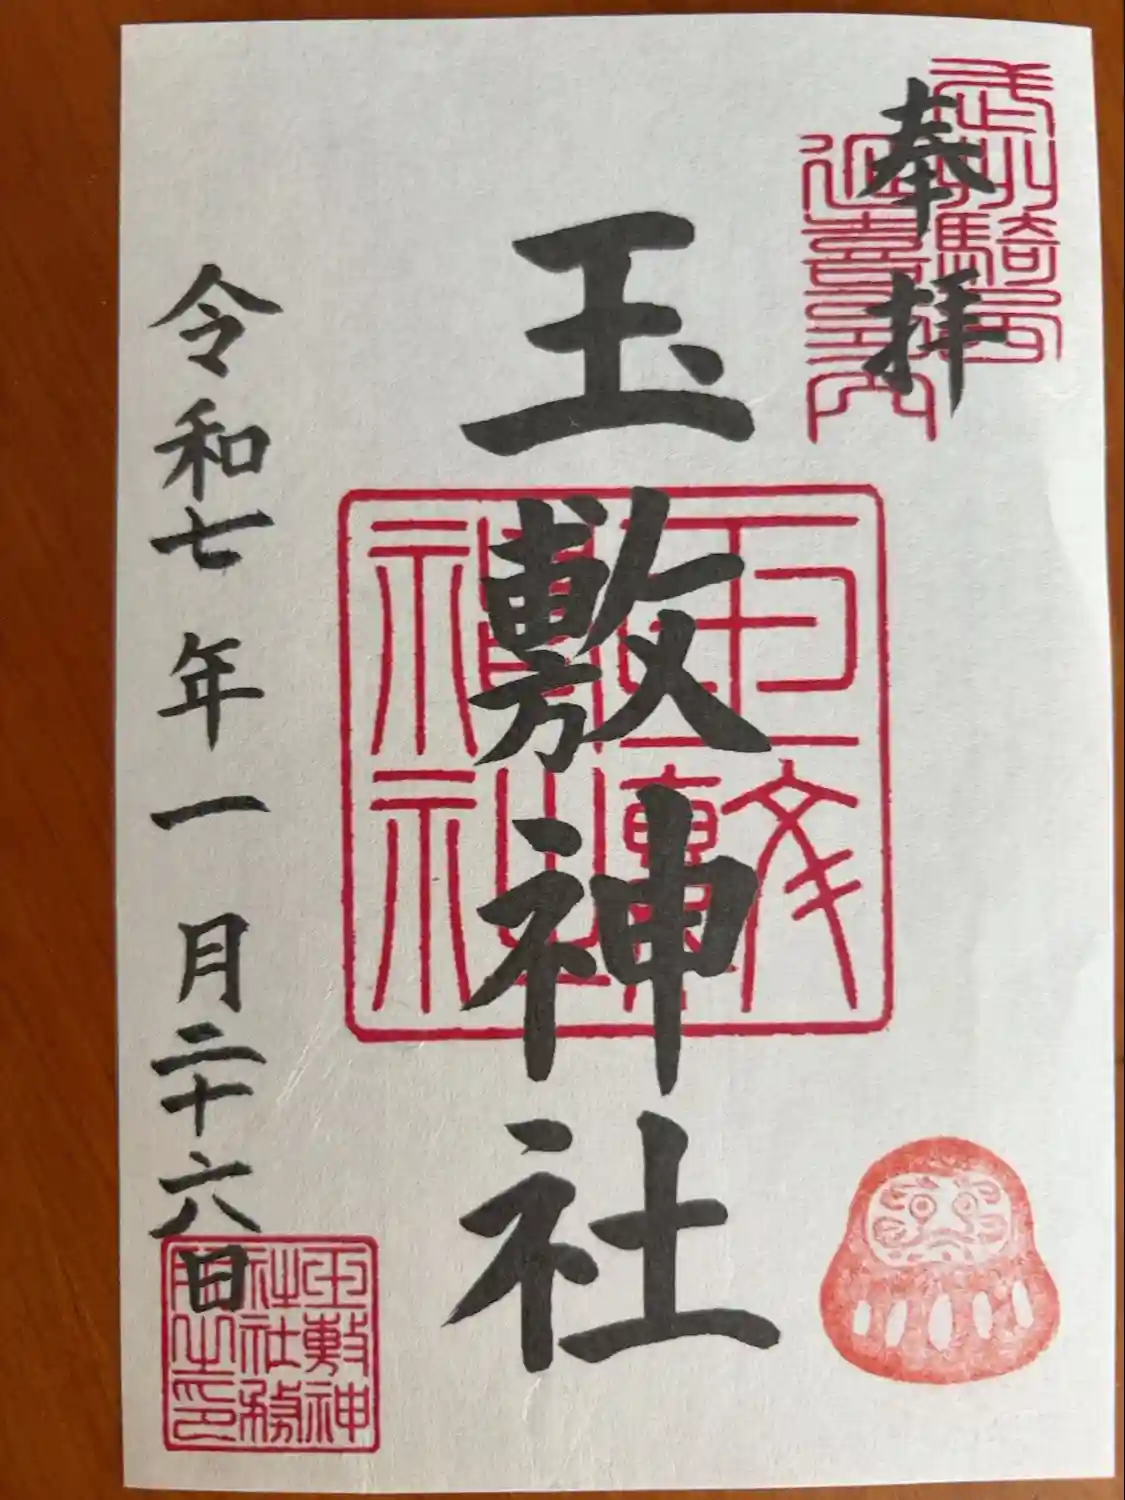 奉拝
武州騎西
延喜式内
玉敷神社
玉敷神社
令和七年一月二十六日
玉敷神
社社務
所之印